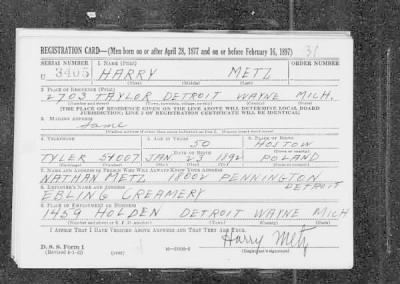 REGISTRATION CARD—(Men born on or after April 28, 1877 and on or before February 16, 1897)
SERIAL NUMBER 1. NAME (Print) ORDER NUMBER
U 3405 HARRY METZ
(First) (Middle) (Last)
2. PLACE OF RESIDENCE (Print)
2703 TAYLOR DETROIT WAYNE MICH.
(Number and street) (Town, township, village, or city) (County) (State)
[THE PLACE OF RESIDENCE GIVEN ON THE LINE ABOVE WILL DETERMINE LOCAL BOARD
JURISDICTION; LINE 2 OF REGISTRATION CERTIFICATE WILL BE IDENTICAL]
3. MAILING ADDRESS
Same
4. TELEPHONE 5. AGE IN YEARS 6. PLACE OF BIRTH
50 HOSTOW
DATE OF BIRTH
TYLER 54007 JAN. 23 1892 POLAND
(Exchange) (Number) (Mo.) (Day) (Yr.) (State or country)
7. NAME AND ADDRESS OF PERSON WHO WILL ALWAYS KNOW YOUR ADDRESS
NATHAN METZ 18002 PENNINGTON
DETROIT
8. EMPLOYER'S NAME AND ADDRESS
EBLING CREAMERY
9. PLACE OF EMPLOYMENT OR BUSINESS
1459 HOLDEN DETROIT WAYNE MICH
(Number and street or R. F. D. number) (Town) (County) (State)
I AFFIRM THAT I HAVE VERIFIED ABOVE ANSWERS AND THAT THEY ARE TRUE.
D. S. S. Form 1
(Revised 4-1-42) (over)
Harry Metz
(Registrant's signature)